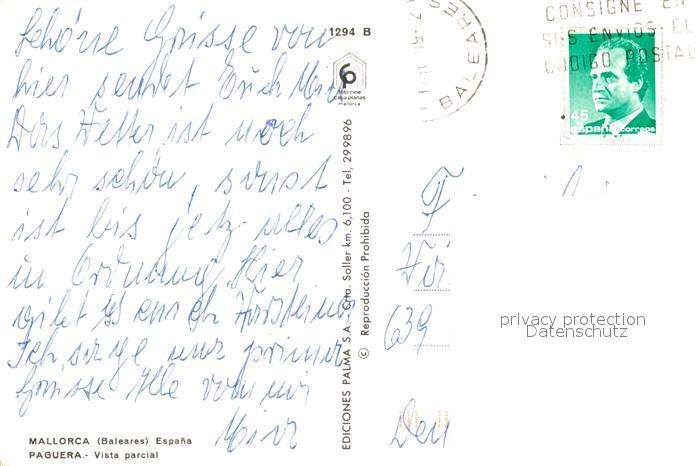 Schöne Grüsse von
hier sendet Euch
Das Wetter ist noch
sehr schön, sonst
ist bis jetz alles
in Ordnung. Hier
gibt es auch
Ich sage nur prima
Grüsse Alle von mir
1294 B
foto cine
casa planas
mallorca
EDICIONES PALMA S.A. - Crta. Soller km. 6,100 - Tel, 299896
© Reproducción Prohibida
MALLORCA (Baleares) España
PAGUERA.- Vista parcial
BALEARES
CONSIGNE EN
SUS ENVIOS EL
CODIGO POSTAL
45
españa correos
639
privacy protection
Datenschutz